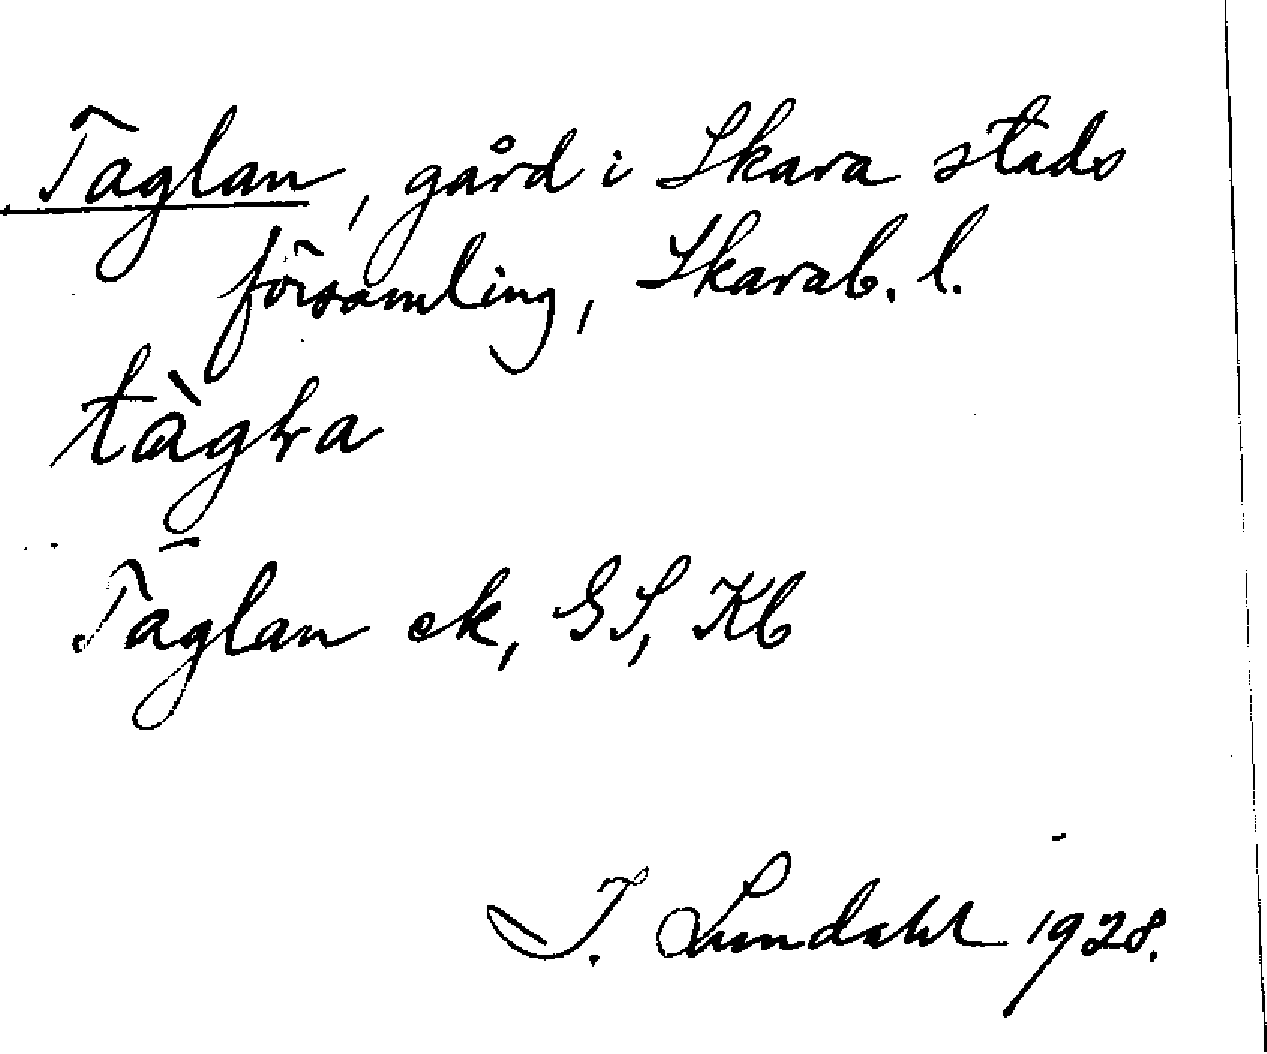 Taglan, gård i Skara stads
församling, Skarab. l.
tàgɫra
Taglan ek, GS, Kb
I. Lundahl 1928.